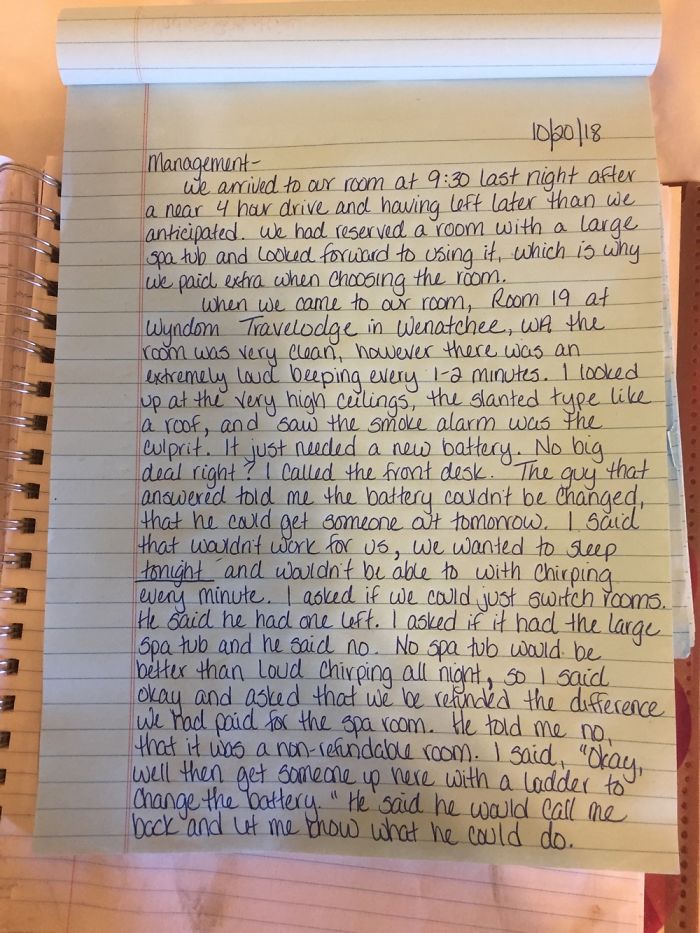 10/20/18
Management-
We arrived to our room at 9:30 last night after
a near 4 hour drive and having left later than we
anticipated. We had reserved a room with a large
spa tub and looked forward to using it, which is why
we paid extra when choosing the room.
When we came to our room, Room 19 at
Wyndom Travelodge in Wenatchee, WA the
room was very clean, however there was an
extremely loud beeping every 1-2 minutes. I looked
up at the very high ceilings, the slanted type like
a roof, and saw the smoke alarm was the
culprit. It just needed a new battery. No big
deal right? I called the front desk. The guy that
answered told me the battery couldn't be changed,
that he could get someone out tomorrow. I said
that wouldn't work for us, we wanted to sleep
tonight and wouldn't be able to with chirping
every minute. I asked if we could just switch rooms.
He said he had one left. I asked if it had the large
spa tub and he said no. No spa tub would be
better than loud chirping all night, so I said
okay and asked that we be refunded the difference
we had paid for the spa room. He told me no,
that it was a non-refundable room. I said, "Okay,
well then get someone up here with a ladder to
change the battery." He said he would call me
back and let me know what he could do.